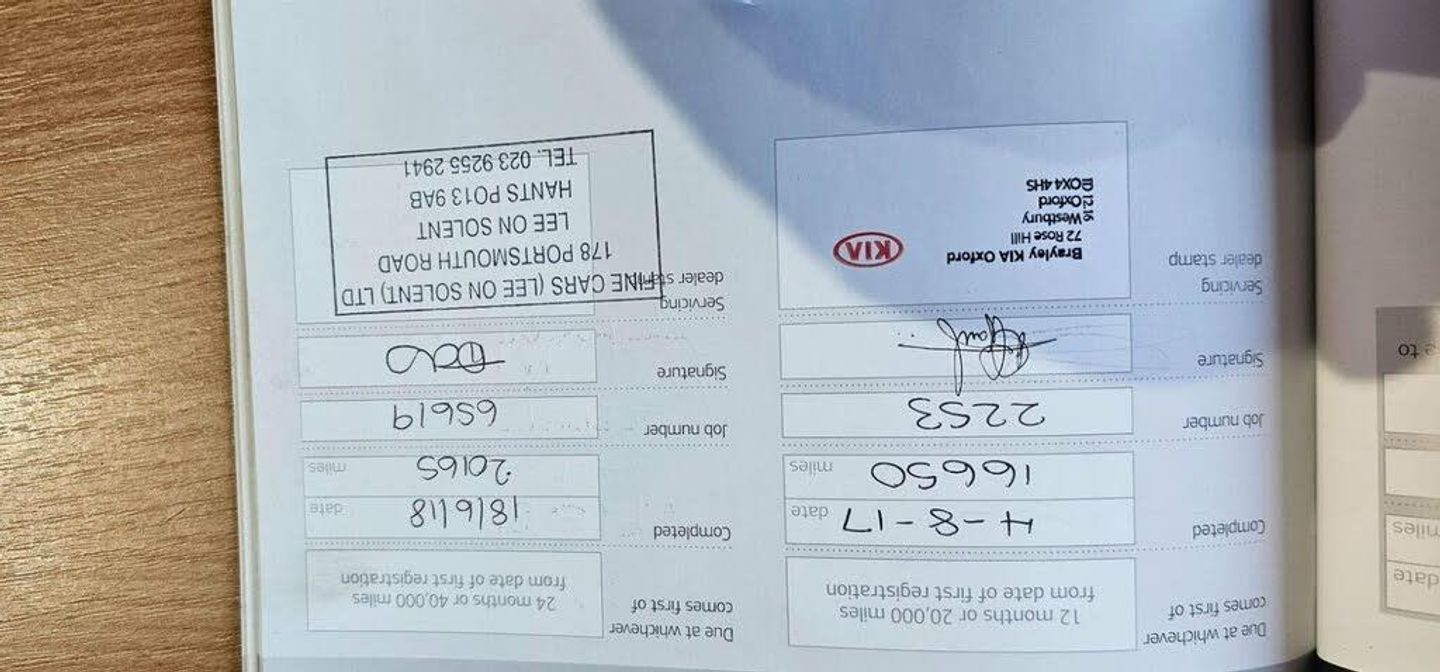 date
miles
e to
Due at whichever
comes first of
12 months or 20,000 miles
from date of first registration
Completed
4-8-17 date
16650 miles
Job number
2253
Signature
Servicing
dealer stamp
Brayley KIA Oxford
72 Rose Hill
Westbury
Oxford
OX4 4HS
KIA
Due at whichever
comes first of
24 months or 40,000 miles
from date of first registration
Completed
18/6/18 date
20165 miles
Job number
65619
Signature
Servicing
dealer stamp
FINE CARS (LEE ON SOLENT) LTD
178 PORTSMOUTH ROAD
LEE ON SOLENT
HANTS PO13 9AB
TEL. 023 9255 2941